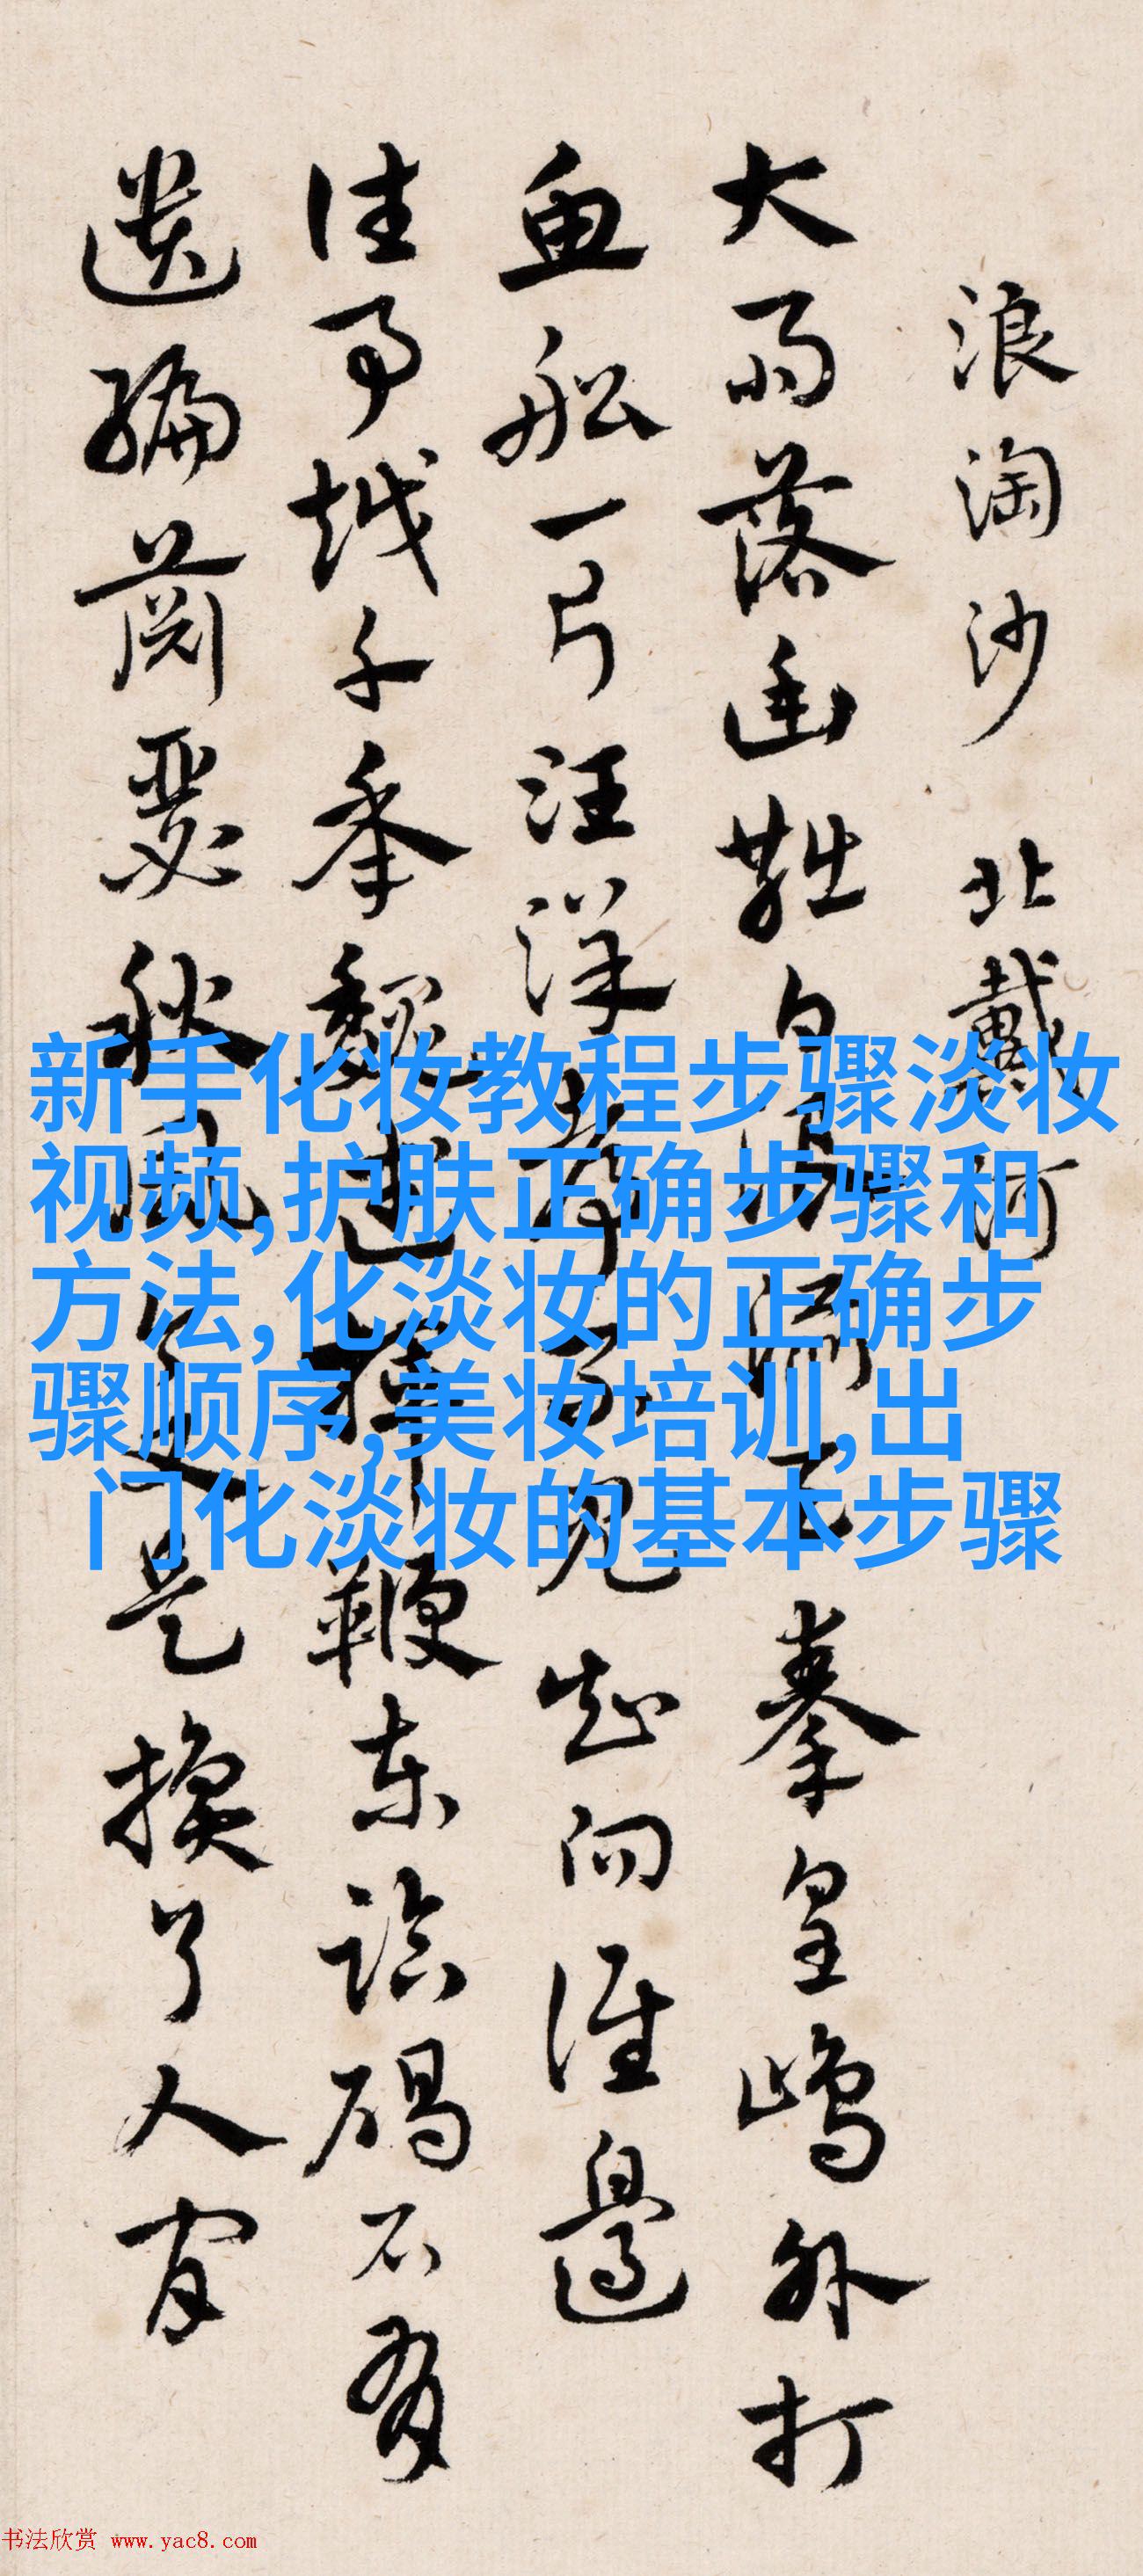 浪淘沙 北戴河
大雨落幽燕白浪滔天秦皇嶋外打
魚船一片汪洋都不見知向誰邊
往事越千年魏武揮鞭東臨碣石有
遺編蕭瑟秋風今又是換了人間
新手化妆教程步骤淡妆
视频,护肤正确步骤和
方法,化淡妆的正确步
骤顺序,美妆培训,出
门化淡妆的基本步骤
书法欣赏 www.yac8.com